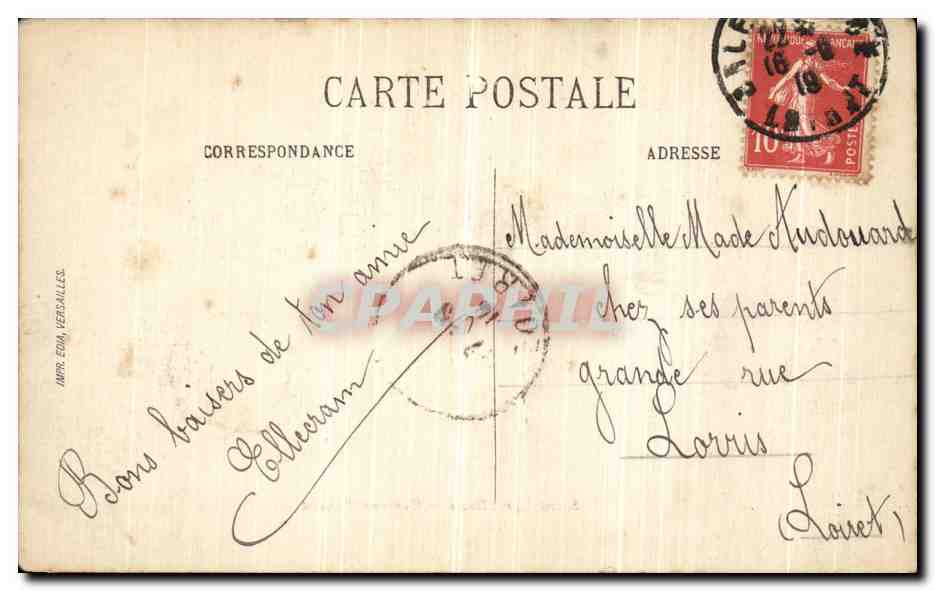 CARTE POSTALE
CORRESPONDANCE
ADRESSE
RÉPUBLIQUE FRANÇAISE
10
POSTES
16 -6
19
LOIRET
Mademoiselle Made Audouard
chez ses parents
grande rue
Lorris
(Loiret)
Bons baisers de ton amie
Ellecram
IMP. EDIA, VERSAILLES.
CPAPHIL